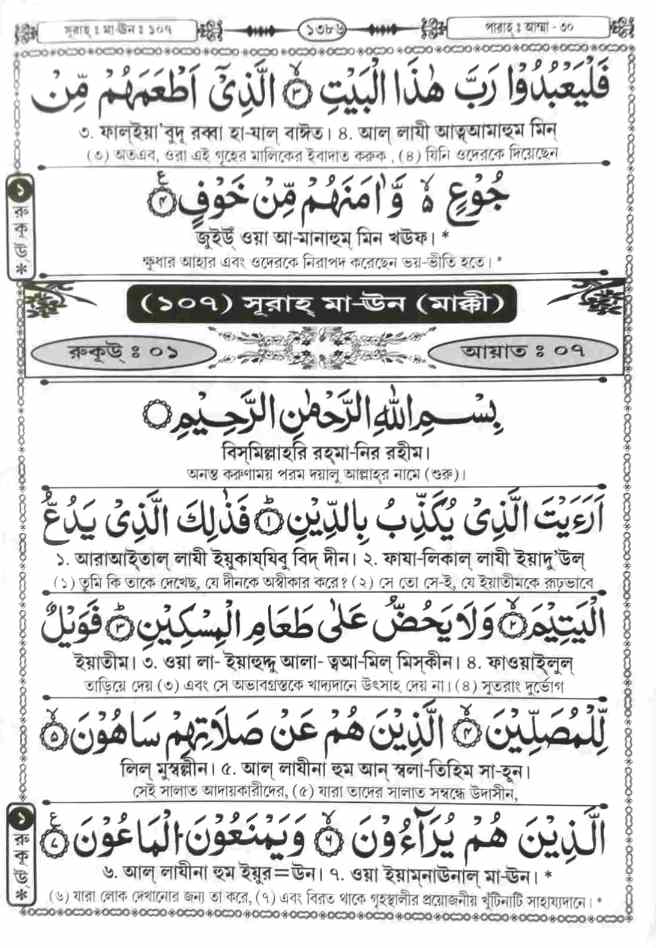 সূরাহ্ : মা-ঊন : ১০৭ ১৩৮৬ পারাহ্ : আম্মা - ৩০
فَلْيَعْبُدُوْا رَبَّ هٰذَا الْبَيْتِ ۙ﴿۳﴾ الَّذِيْۤ اَطْعَمَهُمْ مِّنْ
৩. ফাল্ইয়া'বুদূ রব্বা হা-যাল্ বাঈত। ৪. আল্ লাযী আত্বআমাহুম মিন্
(৩) অতএব, ওরা এই গৃহের মালিকের ইবাদাত করুক , (৪) যিনি ওদেরকে দিয়েছেন
جُوْعٍ ۙ وَّاٰمَنَهُمْ مِّنْ خَوْفٍ ﴿۴﴾ ع
জুইউঁ ওয়া আ-মানাহুম্ মিন খঊফ। *
ক্ষুধার আহার এবং ওদেরকে নিরাপদ করেছেন ভয়-ভীতি হতে। *
১ রুকূউ্ *
(১০৭) সূরাহ্ মা-ঊন (মাক্কী)
রুকূউ্ : ০১ আয়াত : ০৭
بِسْمِ اللّٰهِ الرَّحْمٰنِ الرَّحِيْمِ
বিস্মিল্লাহরি রহ্মা-নির রহীম।
অনন্ত করুণাময় পরম দয়ালু আল্লাহ্র নামে (শুরু)।
اَرَءَيْتَ الَّذِيْ يُكَذِّبُ بِالدِّيْنِ ؕ﴿۱﴾ فَذٰلِكَ الَّذِيْ يَدُعُّ
১. আরাআইতাল্ লাযী ইয়ুকাযযিবু বিদ্ দীন। ২. ফাযা-লিকাল্ লাযী ইয়াদু'উল্
(১) তুমি কি তাকে দেখেছ, যে দীনকে অস্বীকার করে? (২) সে তো সে-ই, যে ইয়াতীমকে রূঢ়ভাবে
الْيَتِيْمَ ۙ﴿۲﴾ وَلَا يَحُضُّ عَلٰى طَعَامِ الْمِسْكِيْنِ ؕ﴿۳﴾ فَوَيْلٌ
ইয়াতীম। ৩. ওয়া লা- ইয়াহুদ্দু আলা- ত্বআ-মিল্ মিস্কীন। ৪. ফাওয়াইলুল্
তাড়িয়ে দেয় (৩) এবং সে অভাবগ্রস্তকে খাদ্যদানে উৎসাহ দেয় না। (৪) সুতরাং দুর্ভোগ
لِّلْمُصَلِّيْنَ ۙ﴿۴﴾ الَّذِيْنَ هُمْ عَنْ صَلَاتِهِمْ سَاهُوْنَ ۙ﴿۵﴾
লিল্ মুস্বল্লীন। ৫. আল্ লাযীনা হুম আন্ স্বলা-তিহিম সা-হূন।
সেই সালাত আদায়কারীদের, (৫) যারা তাদের সালাত সম্বন্ধে উদাসীন,
الَّذِيْنَ هُمْ يُرَآءُوْنَ ۙ﴿۶﴾ وَيَمْنَعُوْنَ الْمَاعُوْنَ ﴿۷﴾ ع
৬. আল্ লাযীনা হুম ইয়ুর=ঊন। ৭. ওয়া ইয়াম্নাঊনাল্ মা-ঊন। *
(৬) যারা লোক দেখানোর জন্য তা করে, (৭) এবং বিরত থাকে গৃহস্থালীর প্রয়োজনীয় খুঁটিনাটি সাহায্যদানে। *
১ রুকূউ্ *